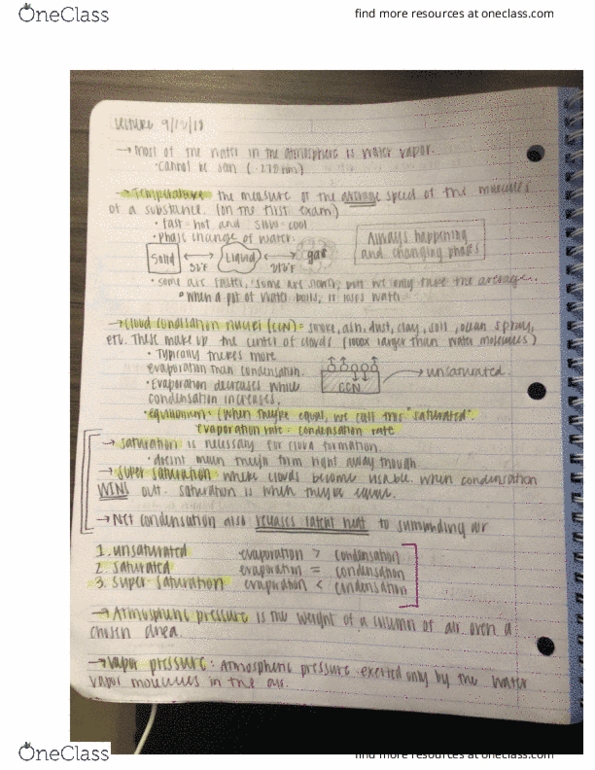 OneClass
find more resources at oneclass.com
Lecture 9/12/18
→ Most of the water in the atmosphere is water vapor.
• Cannot be seen (.275 nm)
→ Temperature the measure of the average speed of the molecules
of a substance. (on the first exam)
• fast-hot and slow-cool
• phase change of water:
Always happening
and changing phases
Solid Liquid gas
32°F 212°F
• some are faster, some are slower, but we only take the average.
• When a pot of water boils, it loses water
→ Cloud Condensation nuclei (CCN) = smoke, ash, dust, clay, soil, ocean spray,
etc. These make up the center of clouds. (100x larger than water molecules)
• Typically theres more
evaporation than condensation.
CCN
→ unsaturated.
• Evaporation decreases while
condensation increases,
• equilibrium. (When theyre equal, we call this "saturated".
evaporation rate = condensation rate
→ saturation is necessary for cloud formation.
• doesnt mean they'll form right away though
→ Super saturation where clouds become visable. When condensation
WINS out. Saturation is when theyre equal.
→ Net condensation also releases latent heat to surrounding air
1. unsaturated evaporation > condensation
2. saturated evaporation = condensation
3. super-saturation evaporation < condensation
→ Atmospheric pressure is the weight of a column of air over a
chosen area.
→ Vapor pressure: Atmospheric pressure exerted only by the water
vapor molecules in the air.
OneClass
find more resources at oneclass.com